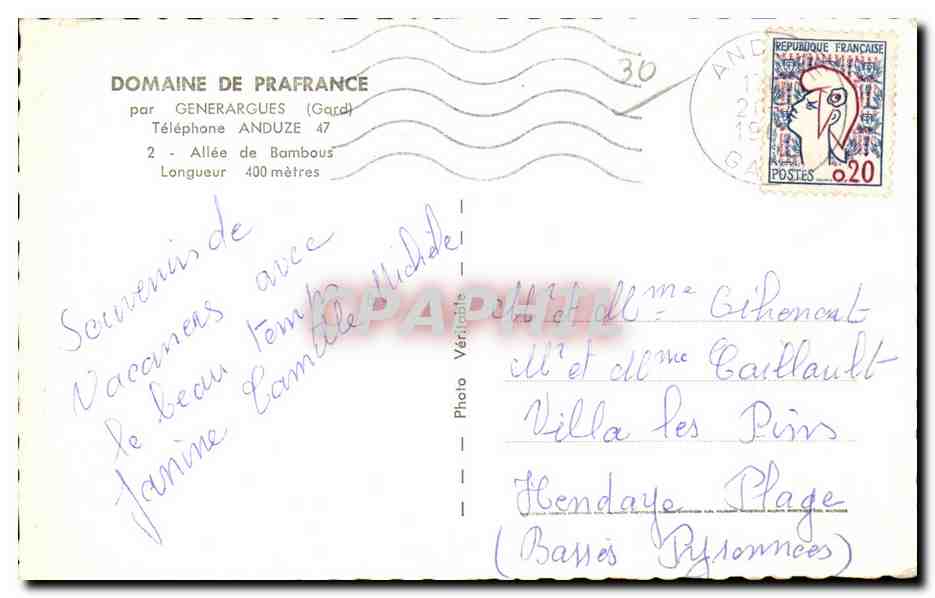 DOMAINE DE PRAFRANCE
par GENERARGUES (Gard)
Téléphone ANDUZE 47
2 - Allée de Bambous
Longueur 400 mètres
30
AND
GA
REPUBLIQUE FRANÇAISE
POSTES 0,20
Souvenirs de
Vacances avec
le beau temps
Janine Camille Michèle
Photo Véritable
CPAPHIL
Mr et Mme
Mr et Mme Caillault
Villa les Pins
Hendaye Plage
(Basses Pyrennées)